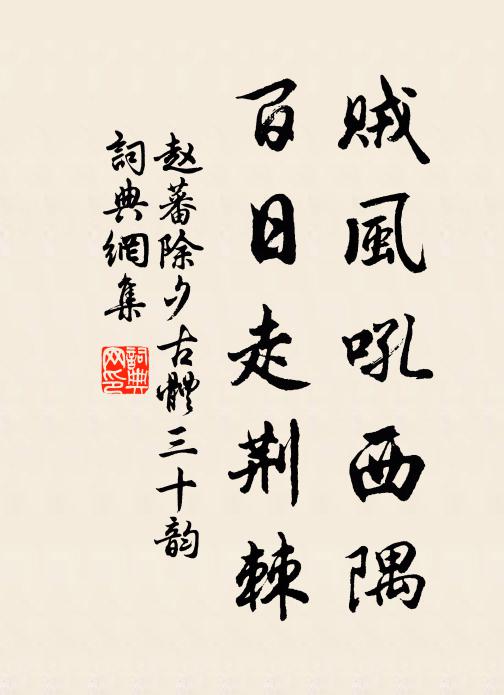 賊風吼西隅
百日走荆棘
赵蕃除夕古體三十韵
詞典網集
詞典网印